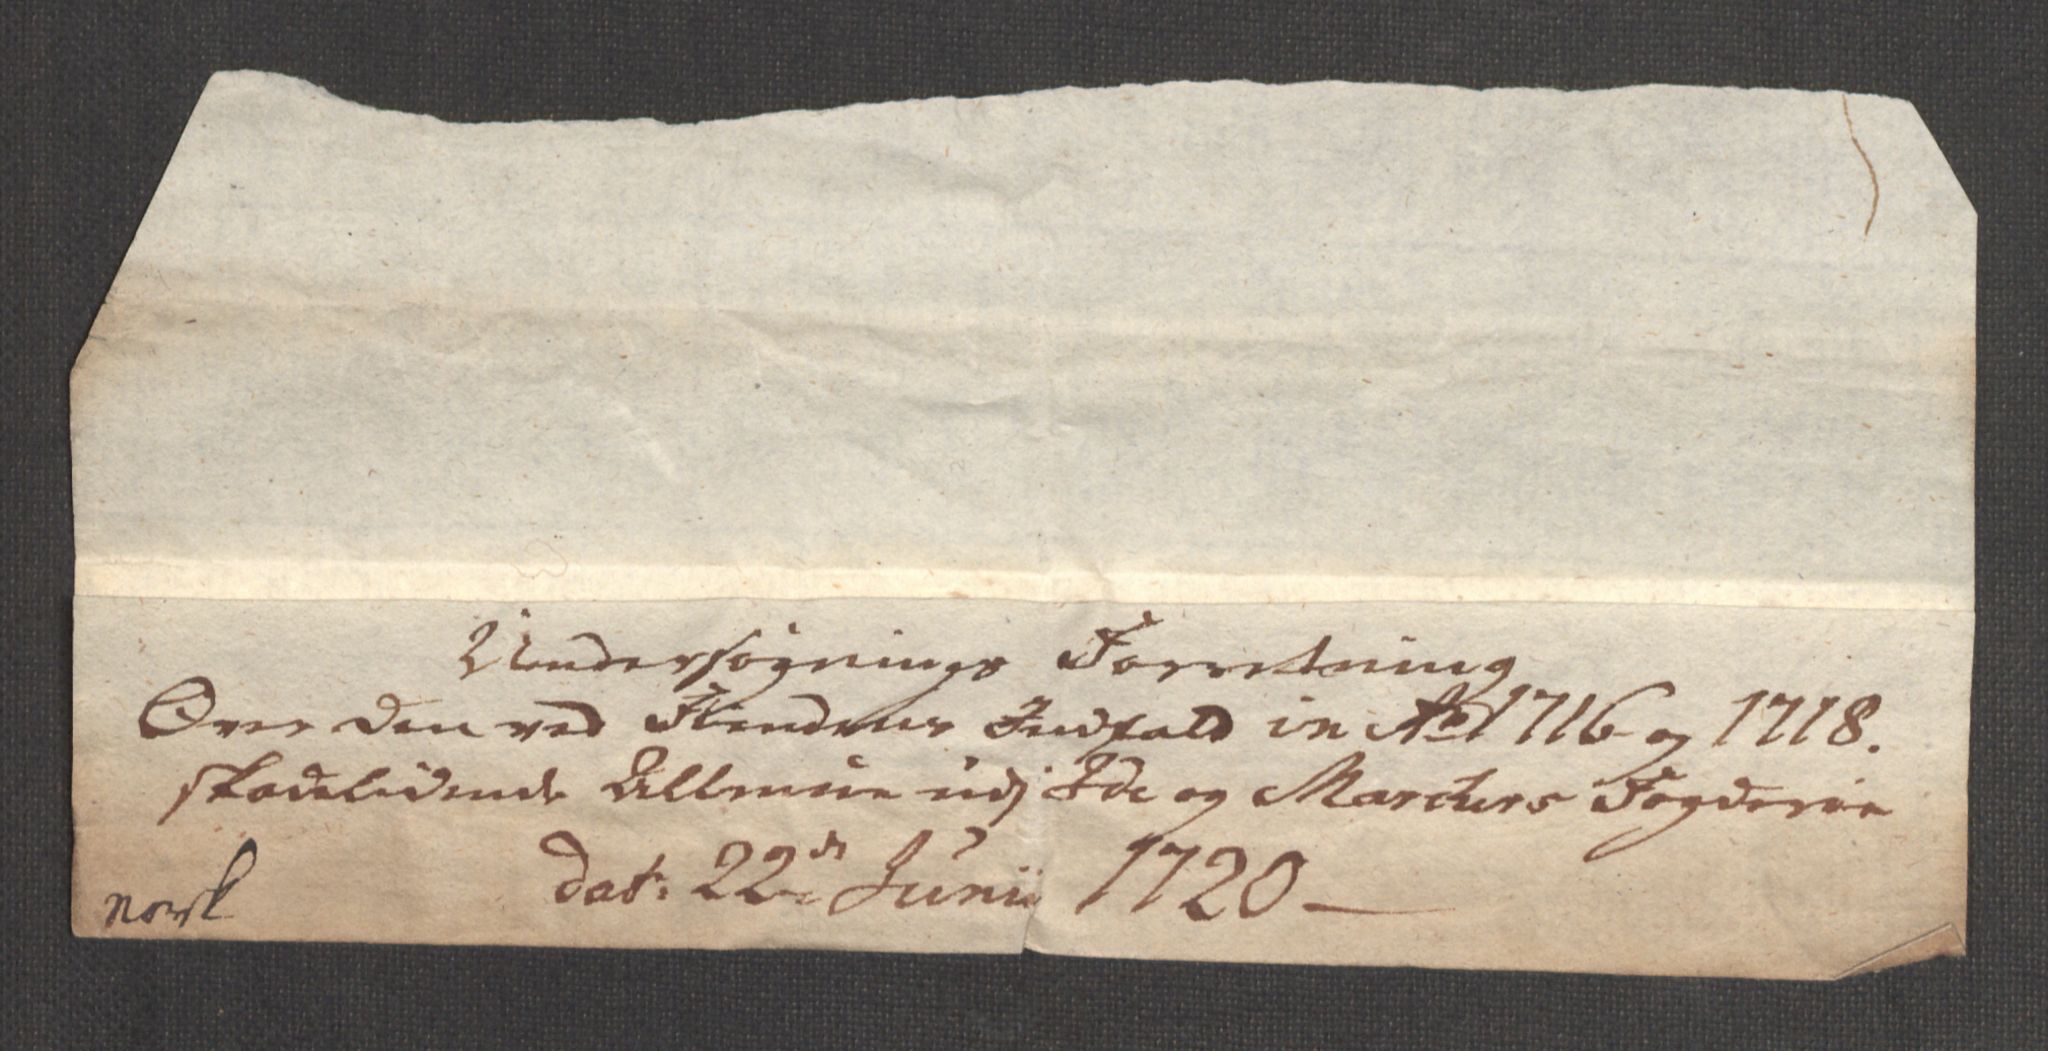 Undersögnings Forretning
Over den ved Fiendens Indfald in Ao 1716 og 1718.
skadelidende Allmue udj Ide og Marchers Fogderie
dat: 22de Junii 1720
norsk